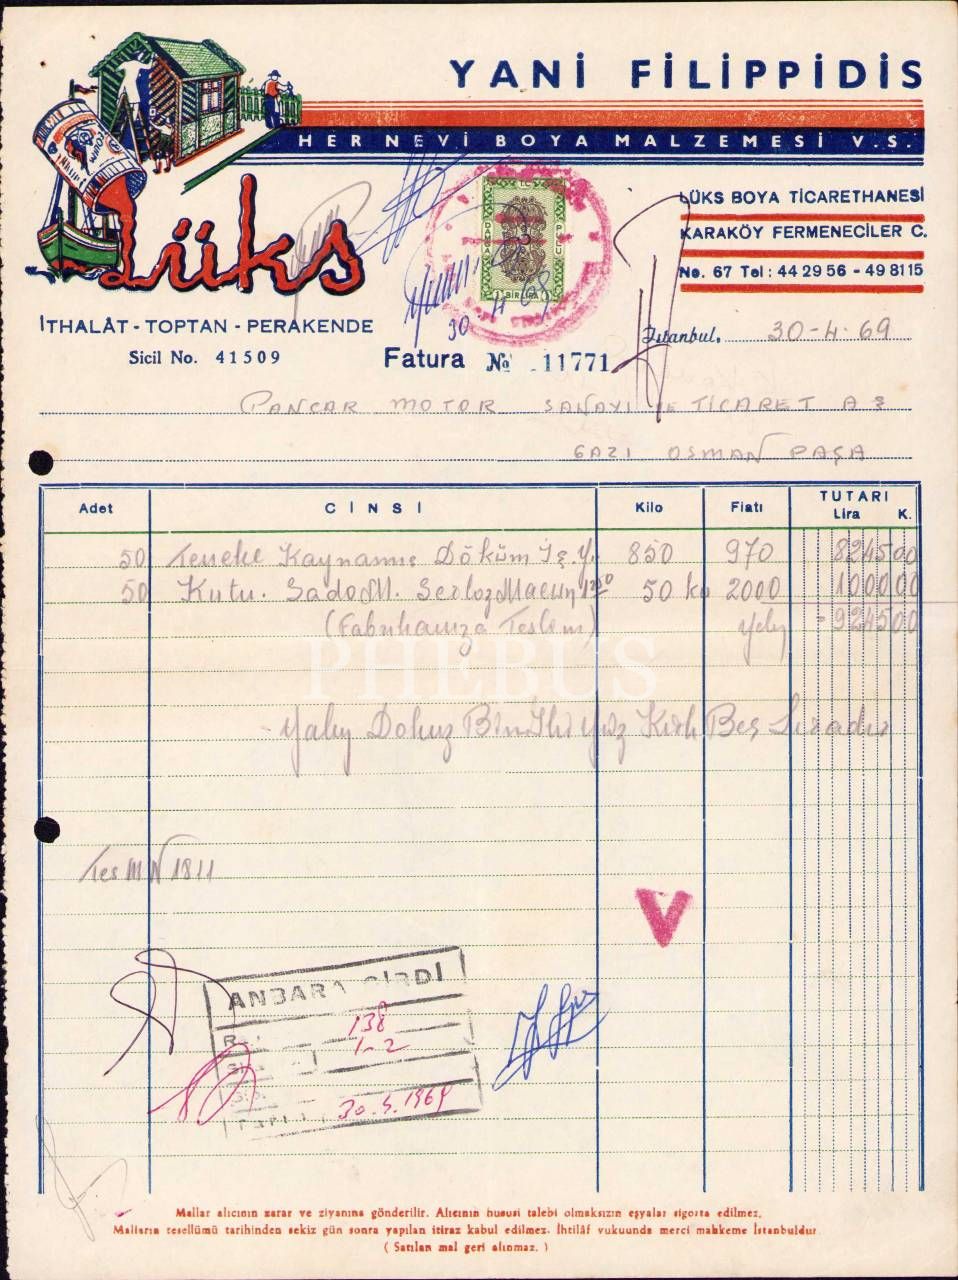 YANİ FİLİPPİDİS
HER NEVİ BOYA MALZEMESİ V.S.
Lüks
LÜKS BOYA TİCARETHANESİ
KARAKÖY FERMENECİLER C.
No. 67 Tel: 44 29 56 - 49 81 15
BİR LİRA
30-4-69
İTHALÂT - TOPTAN - PERAKENDE
Sicil No. 41509
Fatura № 11771
İstanbul, 30-4-69
PANCAR MOTOR SANAYI VE TİCARET A Ş
GAZI OSMAN PAŞA
Adet CİNSİ Kilo Fiatı TUTARI
Lira K.
50 Teneke Kaynamış Döküm 850 970 824500
50 Kutu. 50 2000 100000
Teslim) 924500
PHEBUS
- Yalnız Dokuz Bin İki Yüz Kırk Beş Liradır
Tes M N 1811
V
ANBARA GİRDİ
138
1-2
30.4.1969
Mallar alıcının zarar ve ziyanına gönderilir. Alıcının hususi talebi olmaksızın eşyalar sigorta edilmez.
Malların tesellümü tarihinden sekiz gün sonra yapılan itiraz kabul edilmez. İhtilâf vukuunda merci mahkeme İstanbuldur.
( Satılan mal geri alınmaz. )